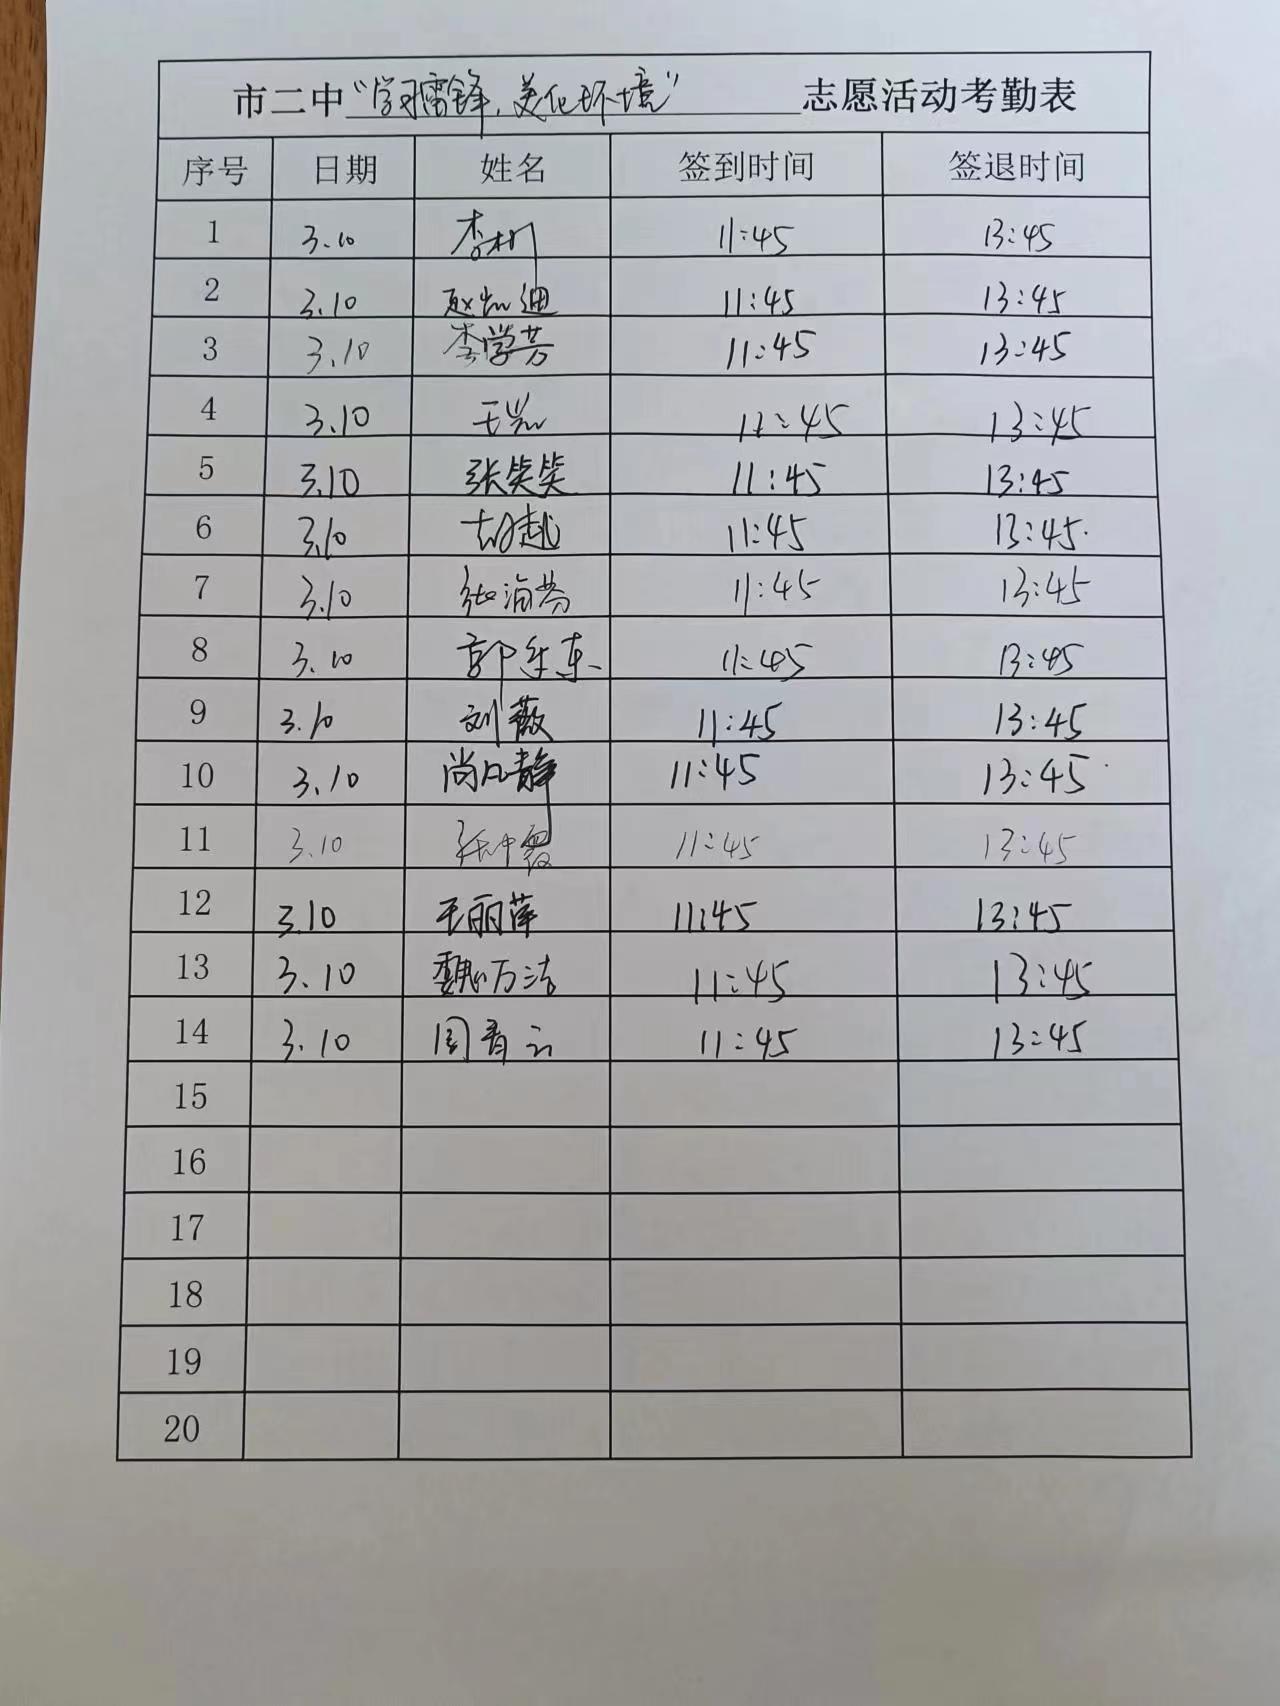 市二中“学习雷锋，美化环境” 志愿活动考勤表
序号 日期 姓名 签到时间 签退时间
1 3.10 11:45 13:45
2 3.10 11:45 13:45
3 3.10 李学芳 11:45 13:45
4 3.10 11:45 13:45
5 3.10 张笑笑 11:45 13:45
6 3.10 胡越 11:45 13:45
7 3.10 11:45 13:45
8 3.10 11:45 13:45
9 3.10 刘薇 11:45 13:45
10 3.10 尚凡静 11:45 13:45
11 3.10 张中霞 11:45 13:45
12 3.10 王丽萍 11:45 13:45
13 3.10 魏万洁 11:45 13:45
14 3.10 周青云 11:45 13:45
15
16
17
18
19
20